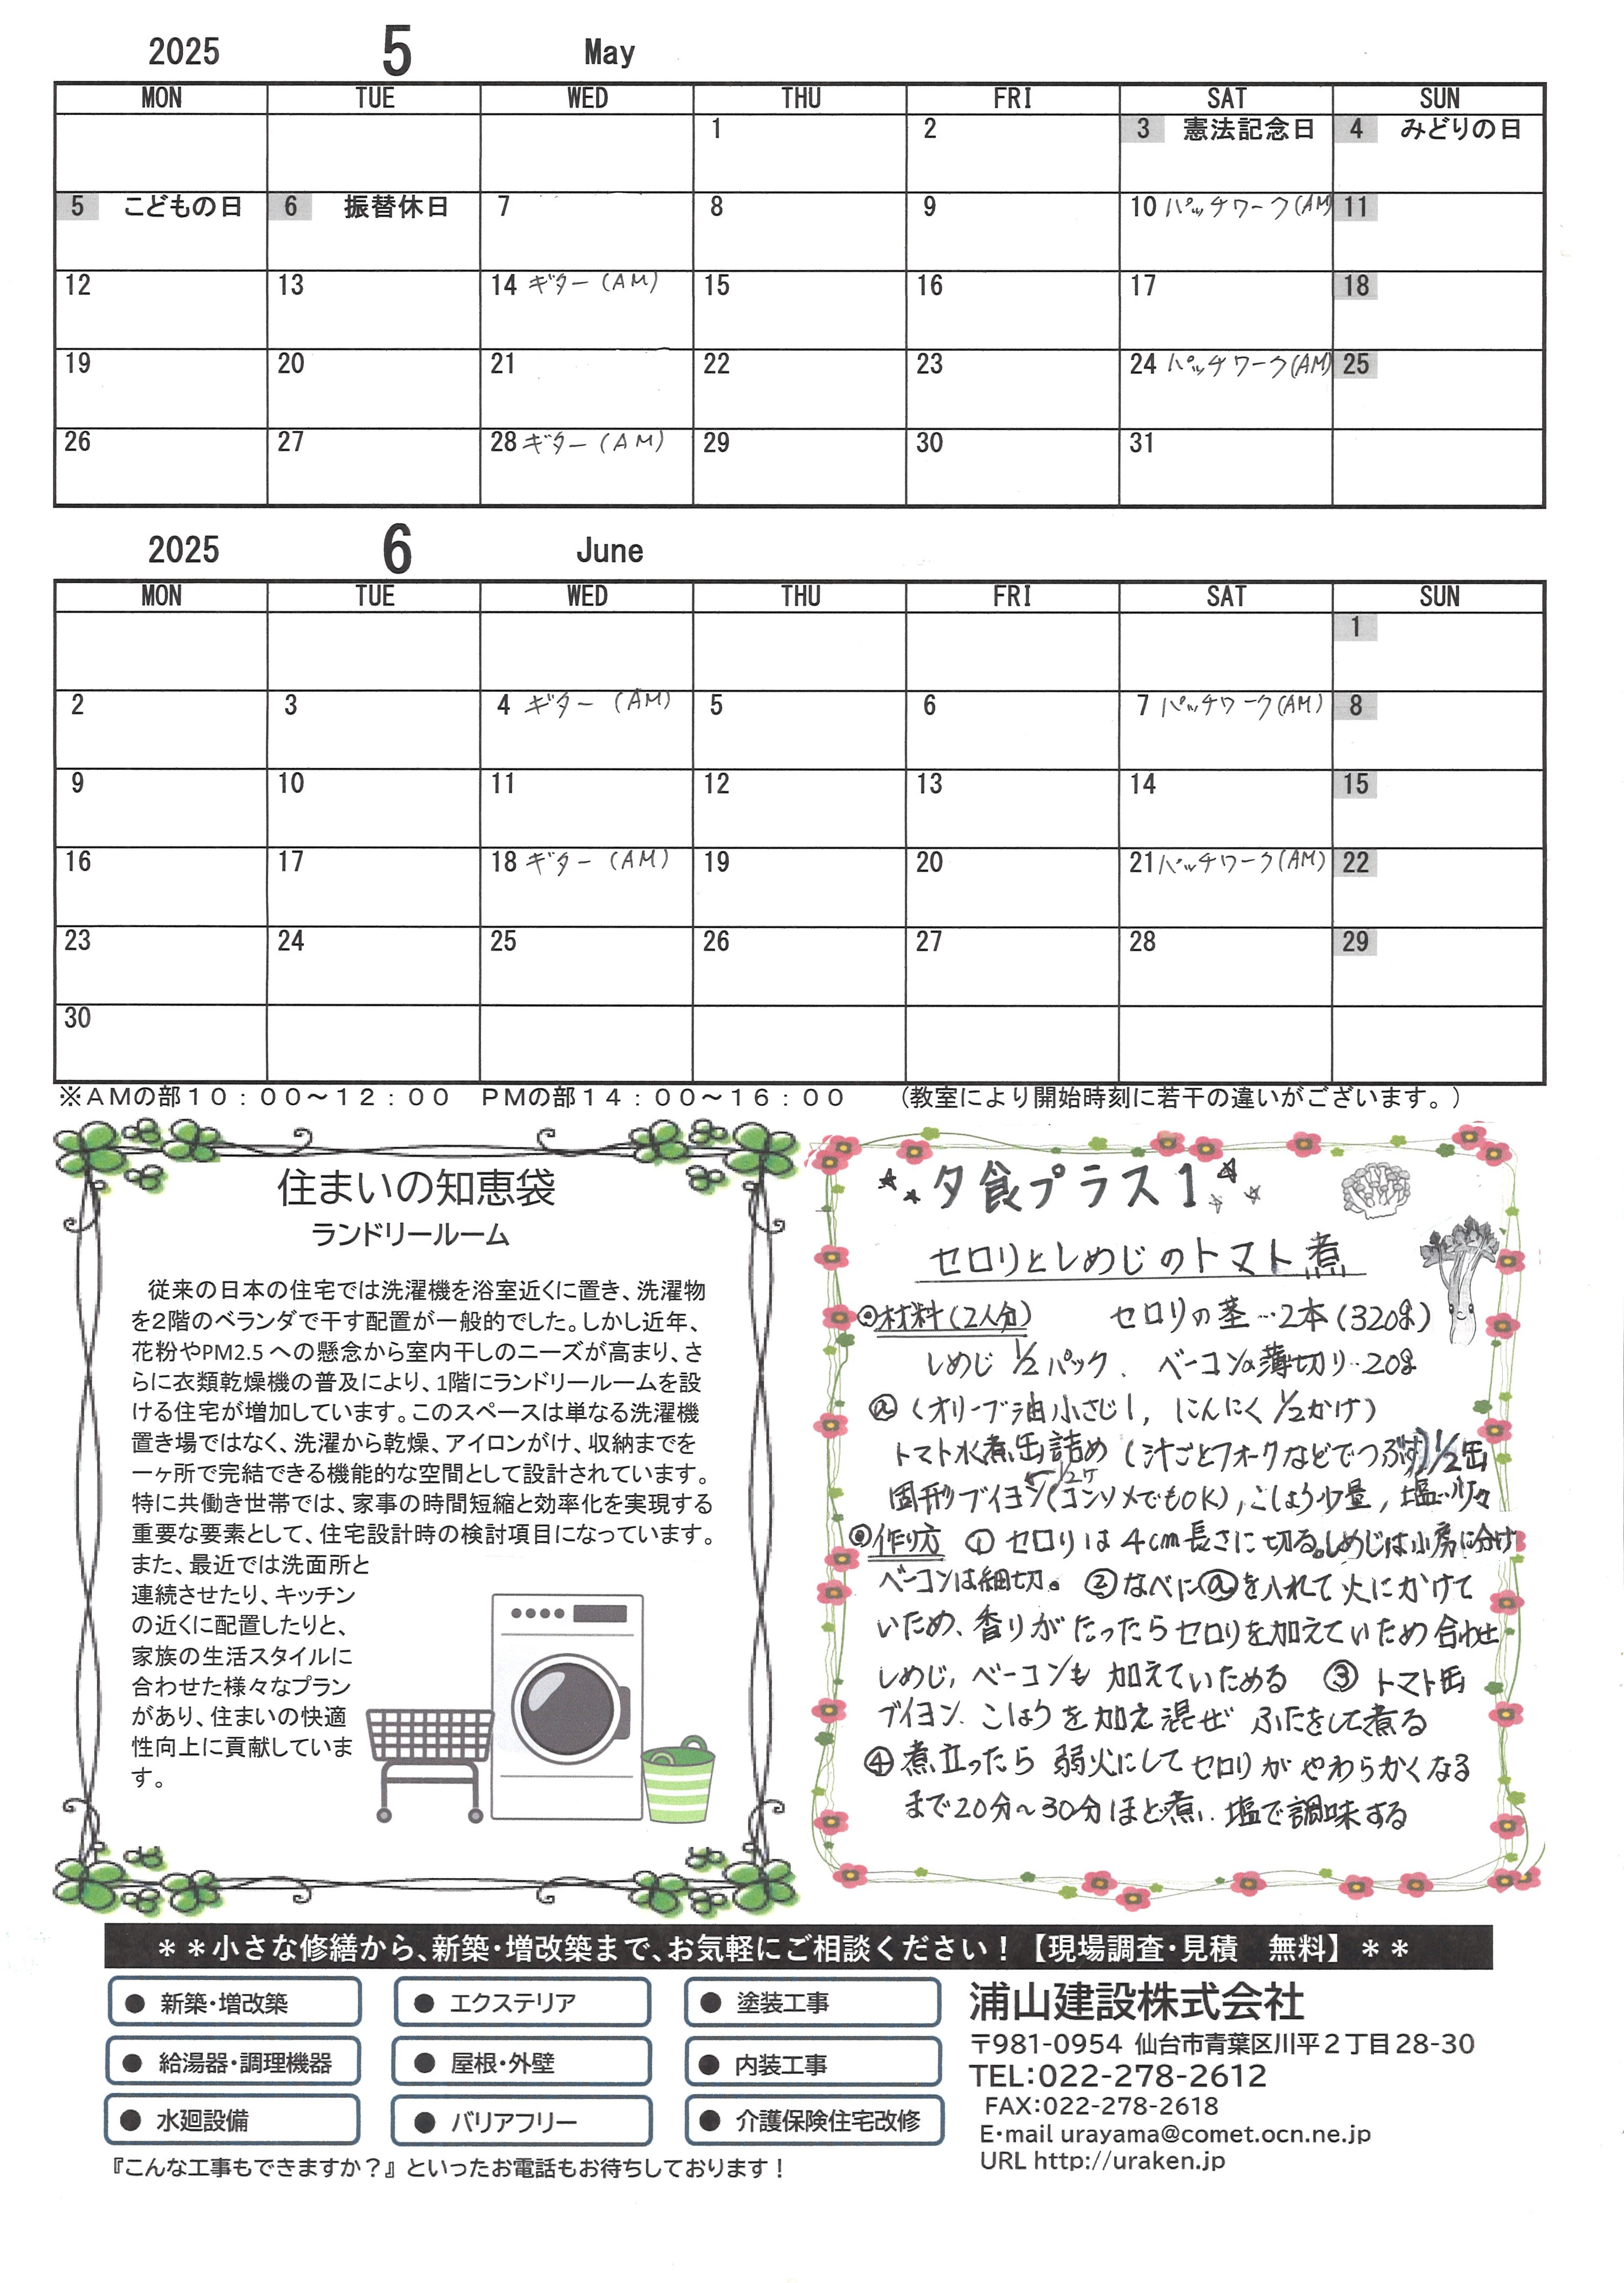 2025 5 May
MON TUE WED THU FRI SAT SUN
1 2 3 憲法記念日 4 みどりの日
5 こどもの日 6 振替休日 7 8 9 10 パッチワーク(AM) 11
12 13 14 ギター(AM) 15 16 17 18
19 20 21 22 23 24 パッチワーク(AM) 25
26 27 28 ギター(AM) 29 30 31
2025 6 June
MON TUE WED THU FRI SAT SUN
1
2 3 4 ギター(AM) 5 6 7 パッチワーク(AM) 8
9 10 11 12 13 14 15
16 17 18 ギター(AM) 19 20 21 パッチワーク(AM) 22
23 24 25 26 27 28 29
30
※AMの部10:00~12:00 PMの部14:00~16:00 (教室により開始時刻に若干の違いがございます。)
住まいの知恵袋
ランドリールーム
従来の日本の住宅では洗濯機を浴室近くに置き、洗濯物
を2階のベランダで干す配置が一般的でした。しかし近年、
花粉やPM2.5 への懸念から室内干しのニーズが高まり、さ
らに衣類乾燥機の普及により、1階にランドリールームを設
ける住宅が増加しています。このスペースは単なる洗濯機
置き場ではなく、洗濯から乾燥、アイロンがけ、収納までを
一ヶ所で完結できる機能的な空間として設計されています。
特に共働き世帯では、家事の時間短縮と効率化を実現する
重要な要素として、住宅設計時の検討項目になっています。
また、最近では洗面所と
連続させたり、キッチン
の近くに配置したりと、
家族の生活スタイルに
合わせた様々なプラン
があり、住まいの快適
性向上に貢献していま
す。
夕食プラス1
セロリとしめじのトマト煮
◎材料(2人分) セロリの茎…2本(320g)
しめじ 1/2パック、ベーコンの薄切り…20g
ⓐ(オリーブ油小さじ1, にんにく 1/2かけ)
トマト水煮缶詰め(汁ごとフォークなどでつぶす)1/2缶
固形ブイヨン(コンソメでもOK), こしょう少量, 塩…少々
←1/2ケ
◎作り方 ① セロリは4cm長さに切る。しめじは小房に分け
ベーコンは細切。 ②なべにⓐを入れて火にかけて
いため、香りがたったらセロリを加えていため合わせ
しめじ, ベーコンも加えていためる ③ トマト缶
ブイヨン、こしょうを加え混ぜ ふたをして煮る
④煮立ったら 弱火にしてセロリがやわらかくなる
まで20分~30分ほど煮、塩で調味する
＊＊小さな修繕から、新築・増改築まで、お気軽にご相談ください！【現場調査・見積 無料】＊＊
● 新築・増改築 ● エクステリア ● 塗装工事
● 給湯器・調理機器 ● 屋根・外壁 ● 内装工事
● 水廻設備 ● バリアフリー ● 介護保険住宅改修
『こんな工事もできますか？』といったお電話もお待ちしております！
浦山建設株式会社
〒981-0954 仙台市青葉区川平2丁目28-30
TEL：022-278-2612
FAX：022-278-2618
E・mail urayama@comet.ocn.ne.jp
URL http://uraken.jp